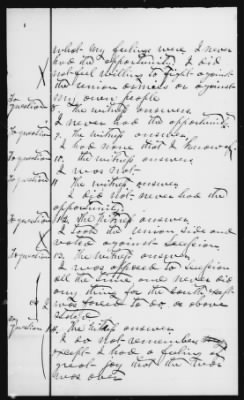 what my feelings were I never
had the opportunity I did
not feel willing to fight against
the union armies or against
my own people
To question 8. the witness answers
I never had the opportunity
To question 9. the witness answers
I had none that I know of
To question 10. the witness answers
I was not
To question 11 The witness answers
I did not never had the
opportunity
To question 12. the witness answers
I took the union side and
voted against Secession
13. The witness answers
I was opposed to secession
all the time and never did
any thing for the south except
was forced to do, as above
stated
To question 14. the witness answers
I do not remember
except I had a feeling of
great joy that the war
was over